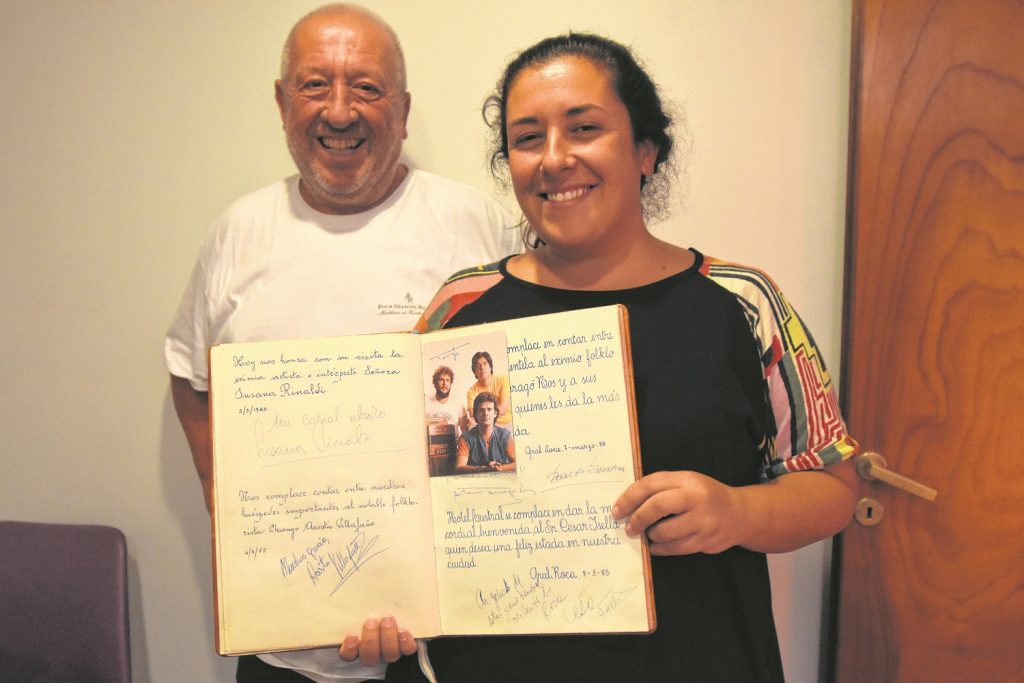 FOUR SEASONS
Hoy nos honra con su visita la
eximia artista e intérprete Señora
Susana Rinaldi
3/3/1985
Mi cordial abrazo
Susana Rinaldi
Nos complace contar entre nuestros
huéspedes importantes al notable folklo-
rista Chango Acosta Villafañe
4/3/85
Muchas gracias,
Acosta Villafañe
omplace en contar entre
entela al eximio folklo-
y a sus
quienes les da la más
da.
Gral. Roca, 7-marzo-85
Hotel forestal se complace en dar la m
cordial bienvenida al Sr. Cesar Isella
quien desea una feliz estada en nuestra
ciudad.
Gral Roca, 8-3-85